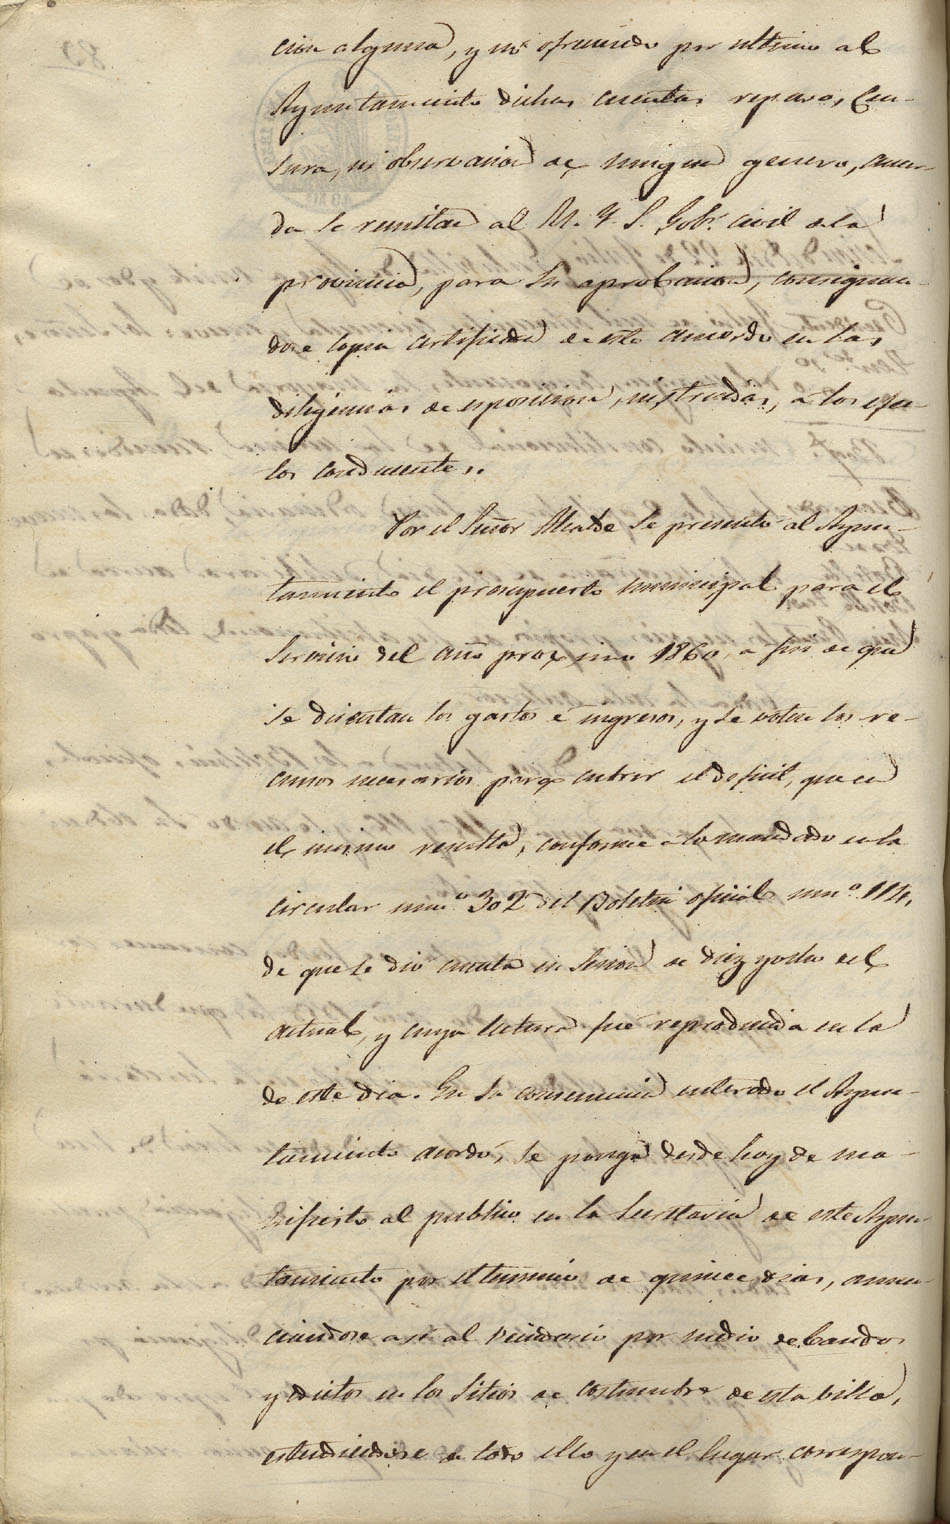 cion alguna, y no ofreciendo por ultimo al
Ayuntamiento dichas cuentas reparo, cen-
sura, ni observacion de ningun genero, acuer-
da se remitan al M. Y. S. Gobr. civil de la
provincia, para su aprobacion, consignan-
dose copia certificada de este acuerdo en las
diligencias de esposicion, instruidas, a los efec-
tos conducentes.
Por el Señor Alcalde se presentó al Ayun-
tamiento el presupuesto municipal para el
servicio del año proximo 1860, a fin de que
se discutan los gastos é ingresos, y se voten los re-
cursos necesarios para cubrir el deficit, que en
el mismo resulta, conforme a lo mandado en la
circular numo. 302 del Boletin oficial numo. 114,
de que se dio cuenta en sesion de diez y ocho del
actual, y cuya lectura fué reproducida en la
de este dia. En su consecuencia enterado el Ayun-
tamiento acordó, se ponga desde hoy de ma-
nifiesto al publico en la Secretaria de este Ayun-
tamiento por el termino de quince dias, anun-
ciandose asi al vecindario por medio de bandos
y edictos en los sitios de costumbre de esta villa,
estendiendose de todo ello y en el lugar correspon-